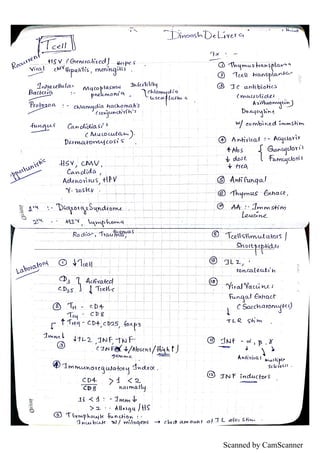 Dinoosh De Livera
T cell
Tx :-
Recurrent
Viral
HSV (Generalised) Herpes
CMV Hepatitis, meningitis
① Thymus transplant
② T cell transplant
Intracellular
Bacteria
Mycoplasma
pneumonia
Infertility
chlamydia
ureaplasma
③ IC antibiotics
(macrolides
Azithromycin)
Doxycycline
w/ combined immstim
Protozoa :- chlamydia trachomatis
(conjunctivitis)
fungus
Candidiasis
(Mucocutan).
Dermatomycosis
④ Antiviral - Acyclovir
↑Abs
↓ dose
↓ HCA
Gancyclovir
Famcyclovir
Opportunistic
HSV, CMV,
Candida,
Adenovirus, HPV
⑤ Antifungal
⑥ Thymus Extract,
1° :- DiGeorge Syndrome
2° :- HIV, Lymphoma
⑦ AA :- Immstim
Leucine
Radiat, Trauma,
⑧ T cell stimulators /
Short peptides
Laboratory
① ↓Tcell
CD3
CD25
Activated
↓ T cells
⑨ IL2,
roncoleukin
② TH - CD4
CD8
↑ Treg - CD4, CD25, foxp3
⑩ Viral Vaccine:
Fungal Extract
(Saccharomyces)
TLR stim
Imm↓
③ ↓IL2, INF, TNF
④ Immunoregulatory Index.
CD4
CD8
>1 <2
normally
⑪ INF - α, β, γ
Antiviral
multiple
Sclerosis
⑫ INF inductors
If <1 :- Imm↓
>2 :- Allergy / HS
⑤ T lymphocyte function :-
Incubate w/ mitogens → chck amount of IL after stim
Scanned by CamScanner